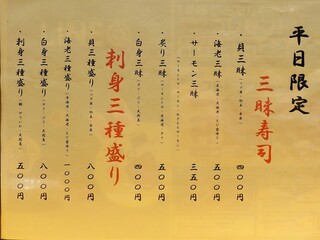 平日限定
三昧寿司
・貝三昧 四〇〇円
・海老三昧 五〇〇円
・サーモン三昧 三五〇円
・炙り三昧 五〇〇円
・白身三昧 四〇〇円
刺身三種盛り
・貝三種盛り 八〇〇円
・海老三種盛り 一〇〇〇円
・白身三種盛り 八〇〇円
・刺身三種盛り 五〇〇円